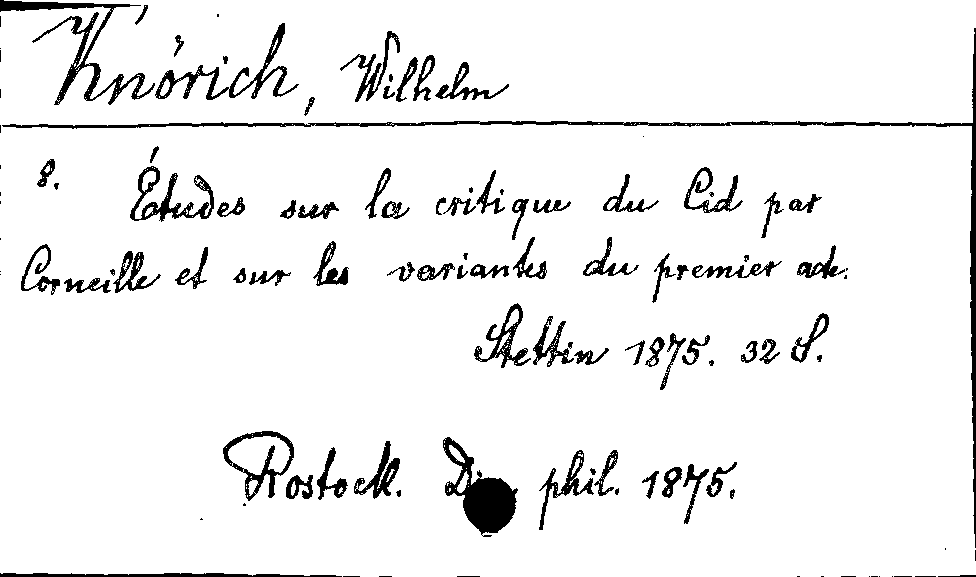 Knörich, Wilhelm
8. Études sur la critique du Cid par
Corneille et sur les variantes du premier acte.
Stettin 1875. 32 S.
Rostock. phil. 1875.